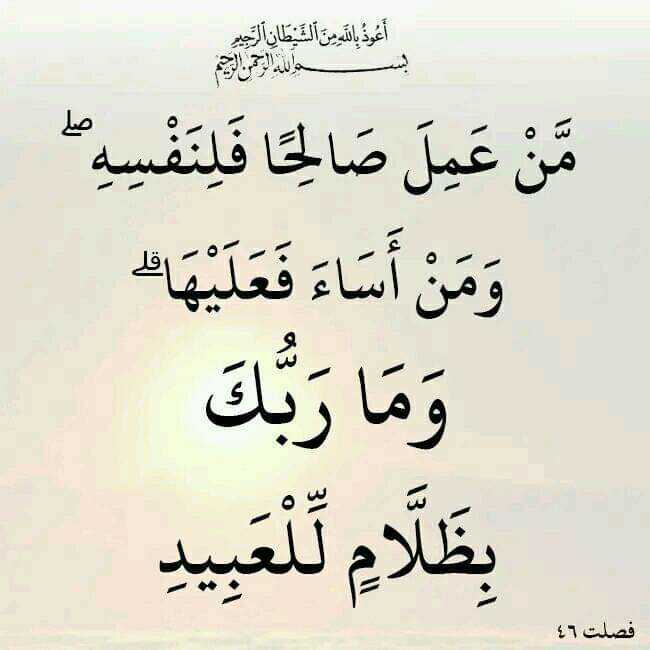 أَعُوذُ بِاللَّهِ مِنَ الشَّيْطَانِ الرَّجِيمِ
بِسْمِ اللَّهِ الرَّحْمَنِ الرَّحِيمِ
مَّنْ عَمِلَ صَالِحًا فَلِنَفْسِهِ ۖ
وَمَنْ أَسَاءَ فَعَلَيْهَا ۗ
وَمَا رَبُّكَ
بِظَلَّامٍ لِّلْعَبِيدِ
فصلت ٤٦